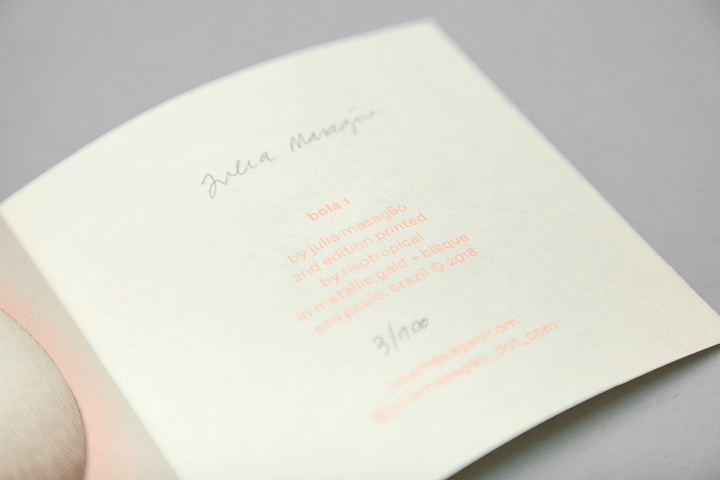 Julia Masagão
bola 1
by julia masagão
2nd edition printed
by risotropical
in metallic gold + bisque
são paulo, brazil © 2018
3/100
juliamasagao.com
@juliamasagao_dot_com